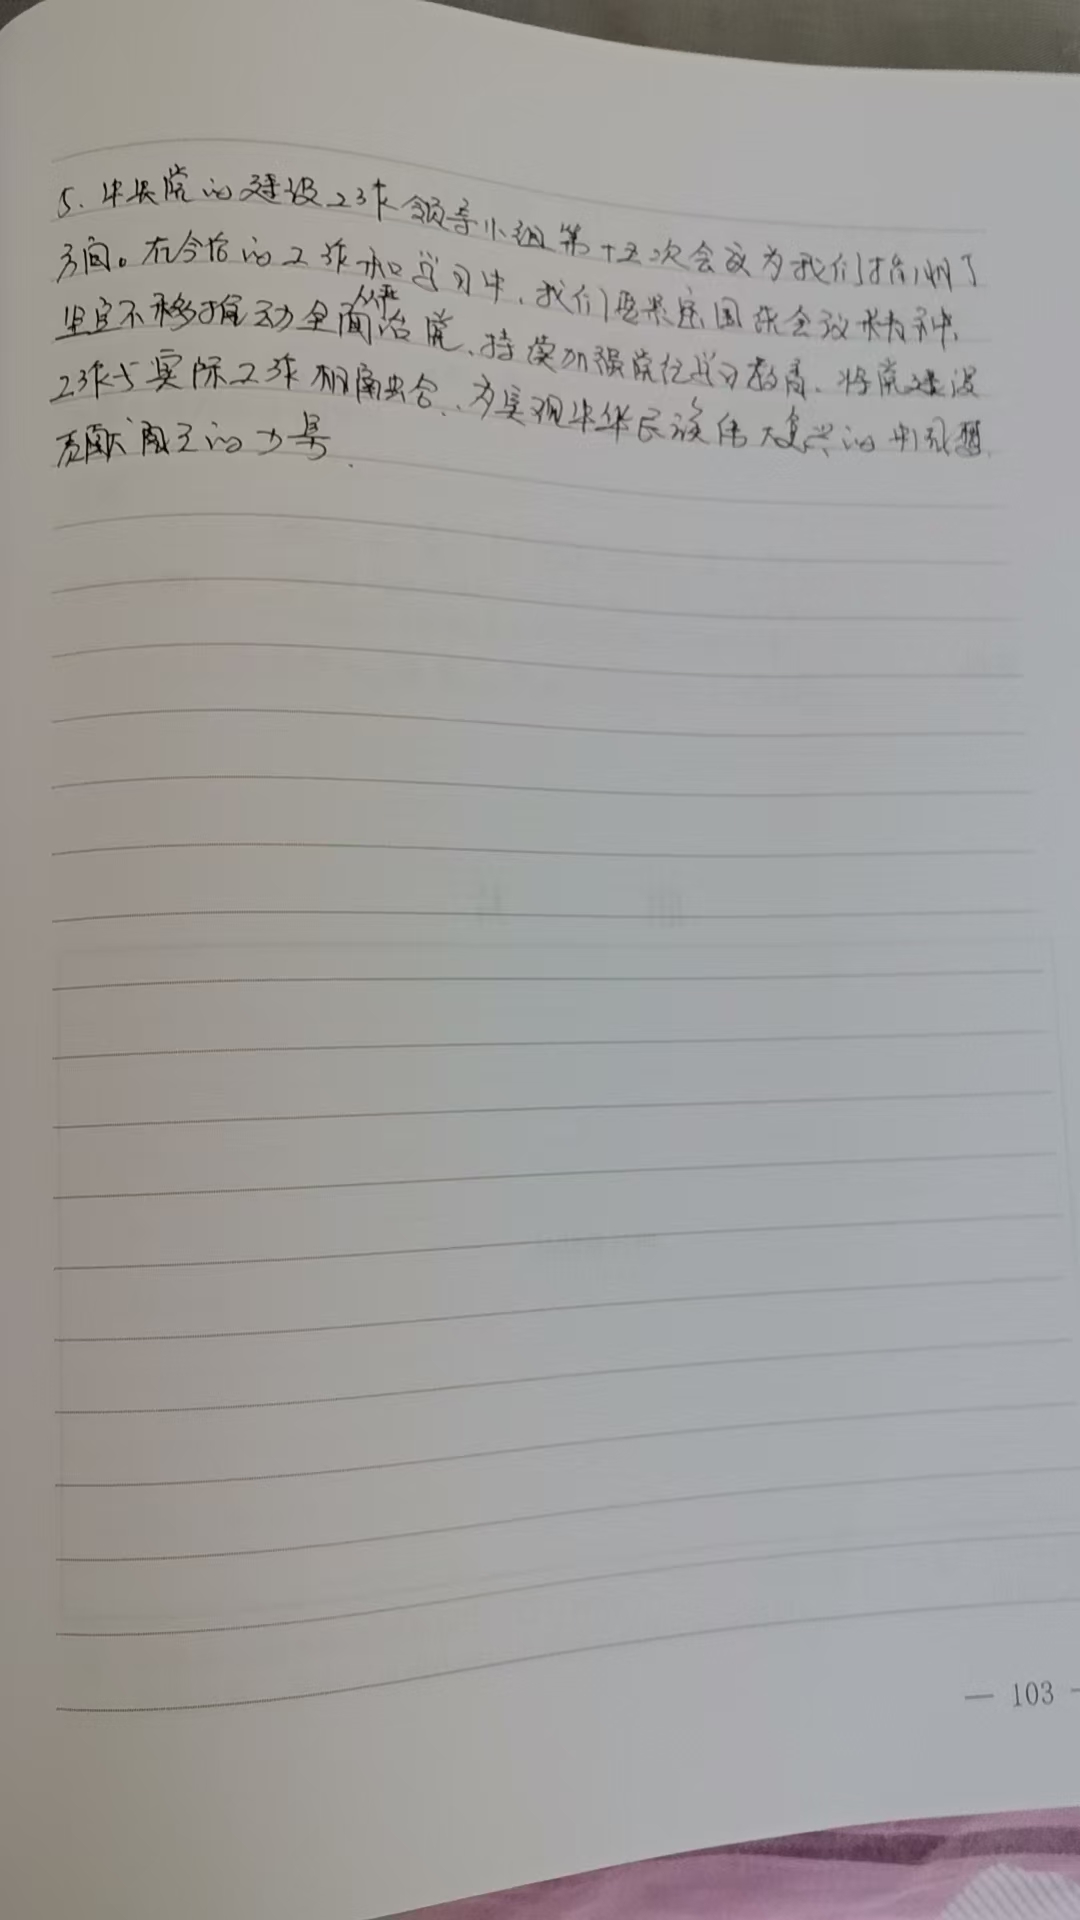 5. 中央党的建设工作领导小组第十五次会议为我们指明了
方向。在今后的工作和学习中，我们要紧密围绕会议精神，
坚定不移推动全面从严治党、持续加强党纪学习教育、将党建设
工作与实际工作相结合，为实现中华民族伟大复兴的中国梦
贡献自己的力量．
— 103 —